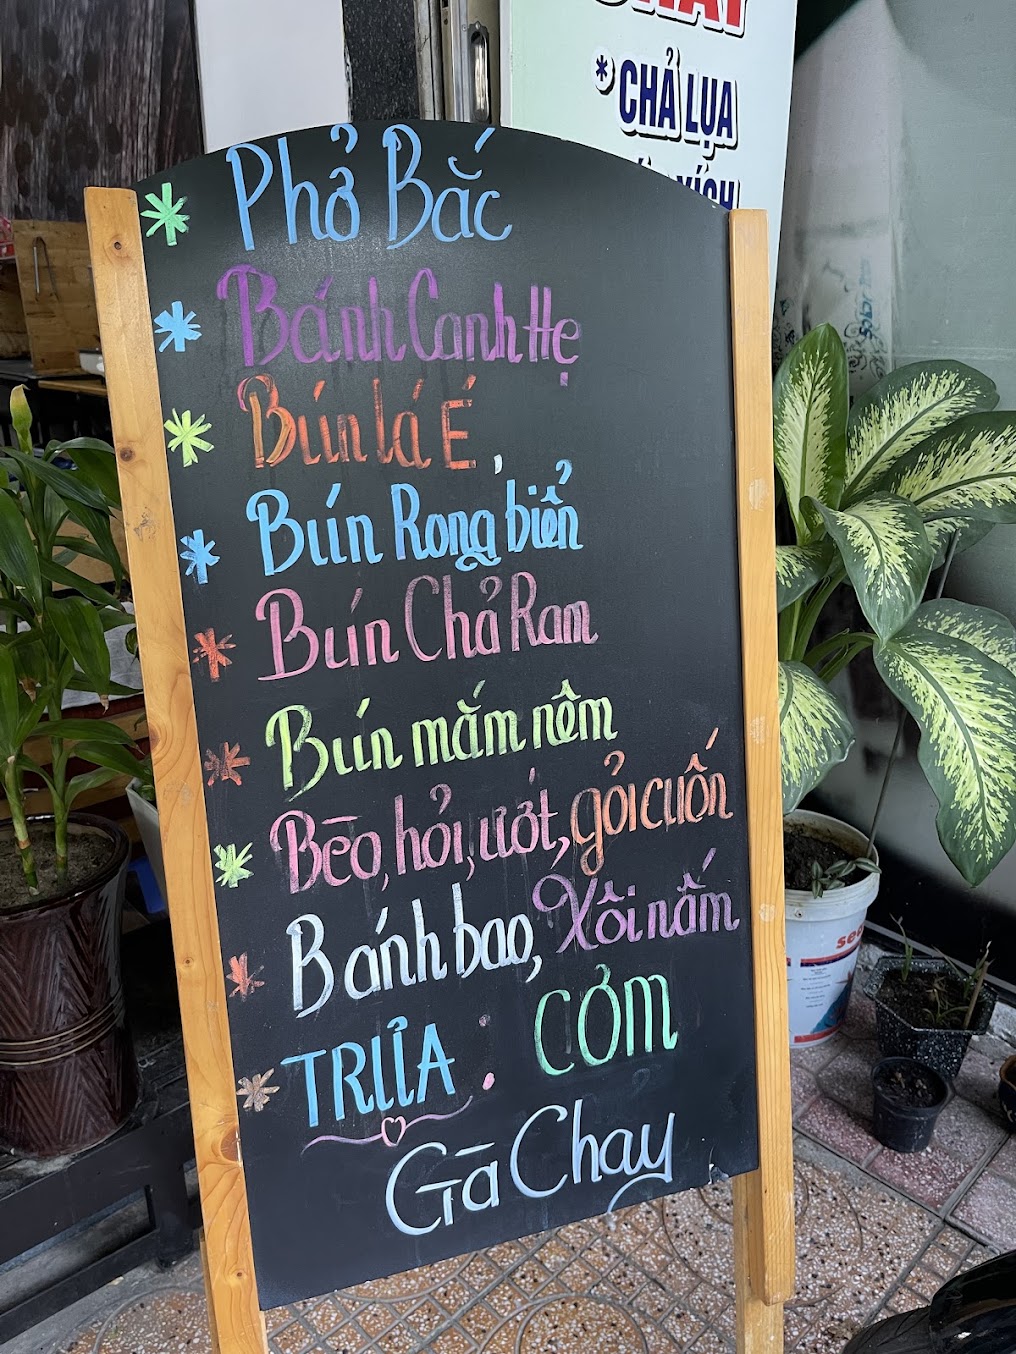 * CHẢ LỤA
XÍCH
* Phở Bắc
* Bánh Canh Hẹ
* Bún lá É
* Bún Rong biển
* Bún Chả Ram
* Bún mắm nêm
* Bèo, hỏi, ướt, gỏi cuốn
* Bánh bao, Xôi nấm
* TRƯA : CƠM
Gà Chay